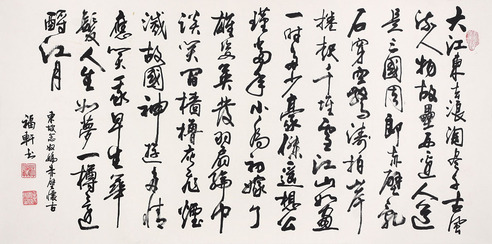 大江東去浪淘盡千古風
流人物故壘西邊人道
是三國周郎赤壁亂
石穿空驚濤拍岸
捲起千堆雪江山如畫
一時多少豪傑遙想公
瑾當年小喬初嫁了
雄姿英發羽扇綸巾
談笑間檣櫓灰飛煙
滅故國神遊多情
應笑我早生華
髮人生如夢一樽還
酹江月
東坡念奴嬌赤壁懷古
福軒書